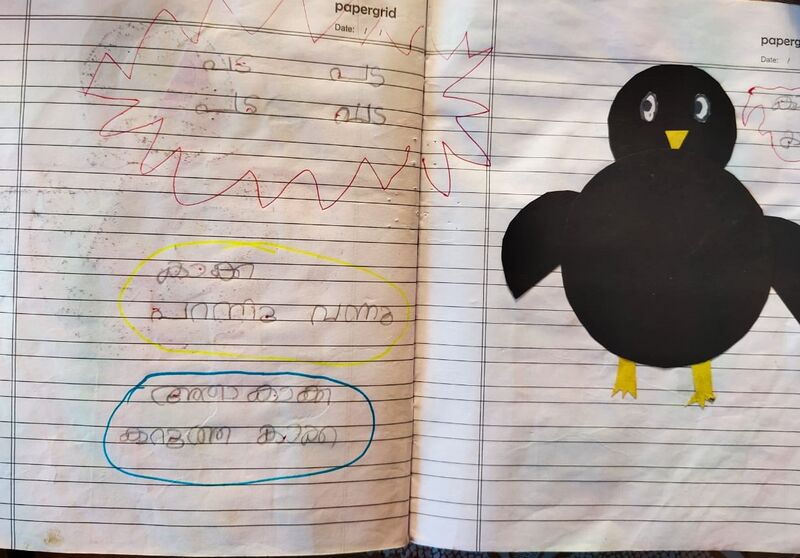 papergrid
Date: / /
പട പട
പട പട
കാക്ക
പറന്നു വന്നു
അതാ കാക്ക
കറുത്ത കാക്ക
paperg
Date: /